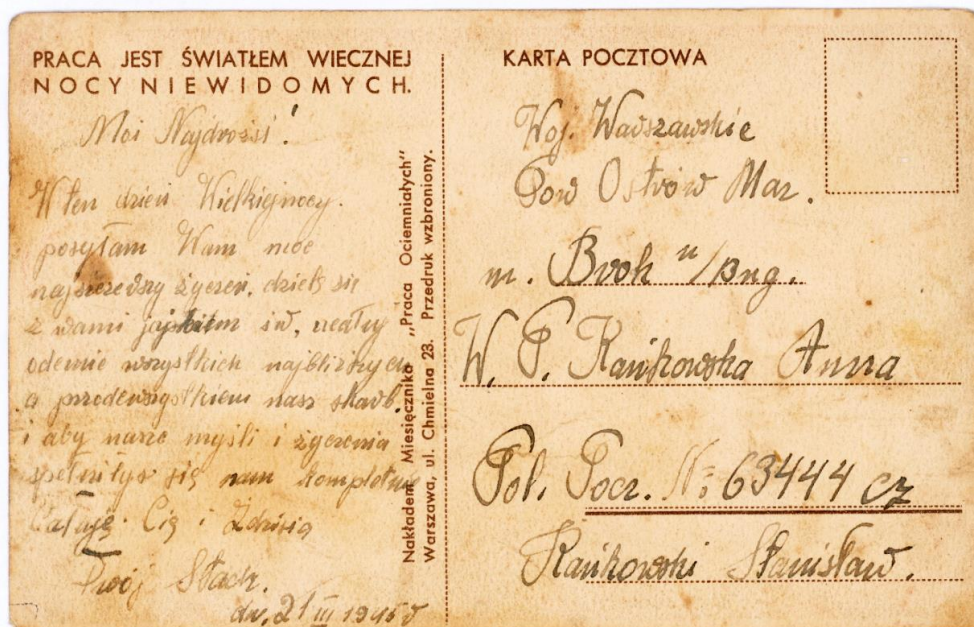 PRACA JEST ŚWIATŁEM WIECZNEJ
NOCY NIEWIDOMYCH.
Moi Najdrożsi!
W ten dzień Wielkiejnocy.
posyłam Wam moc
najszczerdszy życzeń, dzielę się
z wami jajkiem św, ucałuj
odemie wszystkich najbliższych
a przodewszystkiem nasz skarb.
i aby nasze myśli i życzenia
spełniłys się nam kompletnie
Całuję Cię i Zdzisia
Twój Stach.
dn, 21 III 1945 r
Nakładem Miesięcznika „Praca Ociemniałych"
Warszawa, ul. Chmielna 28. Przedruk wzbroniony.
KARTA POCZTOWA
Woj. Warszawskie
Pow Ostrów Maz.
m. Brok n/Bug.
W. P. Kańkowska Anna
Pol. Pocz. N: 63444 cz
Kańkowski Stanisław.